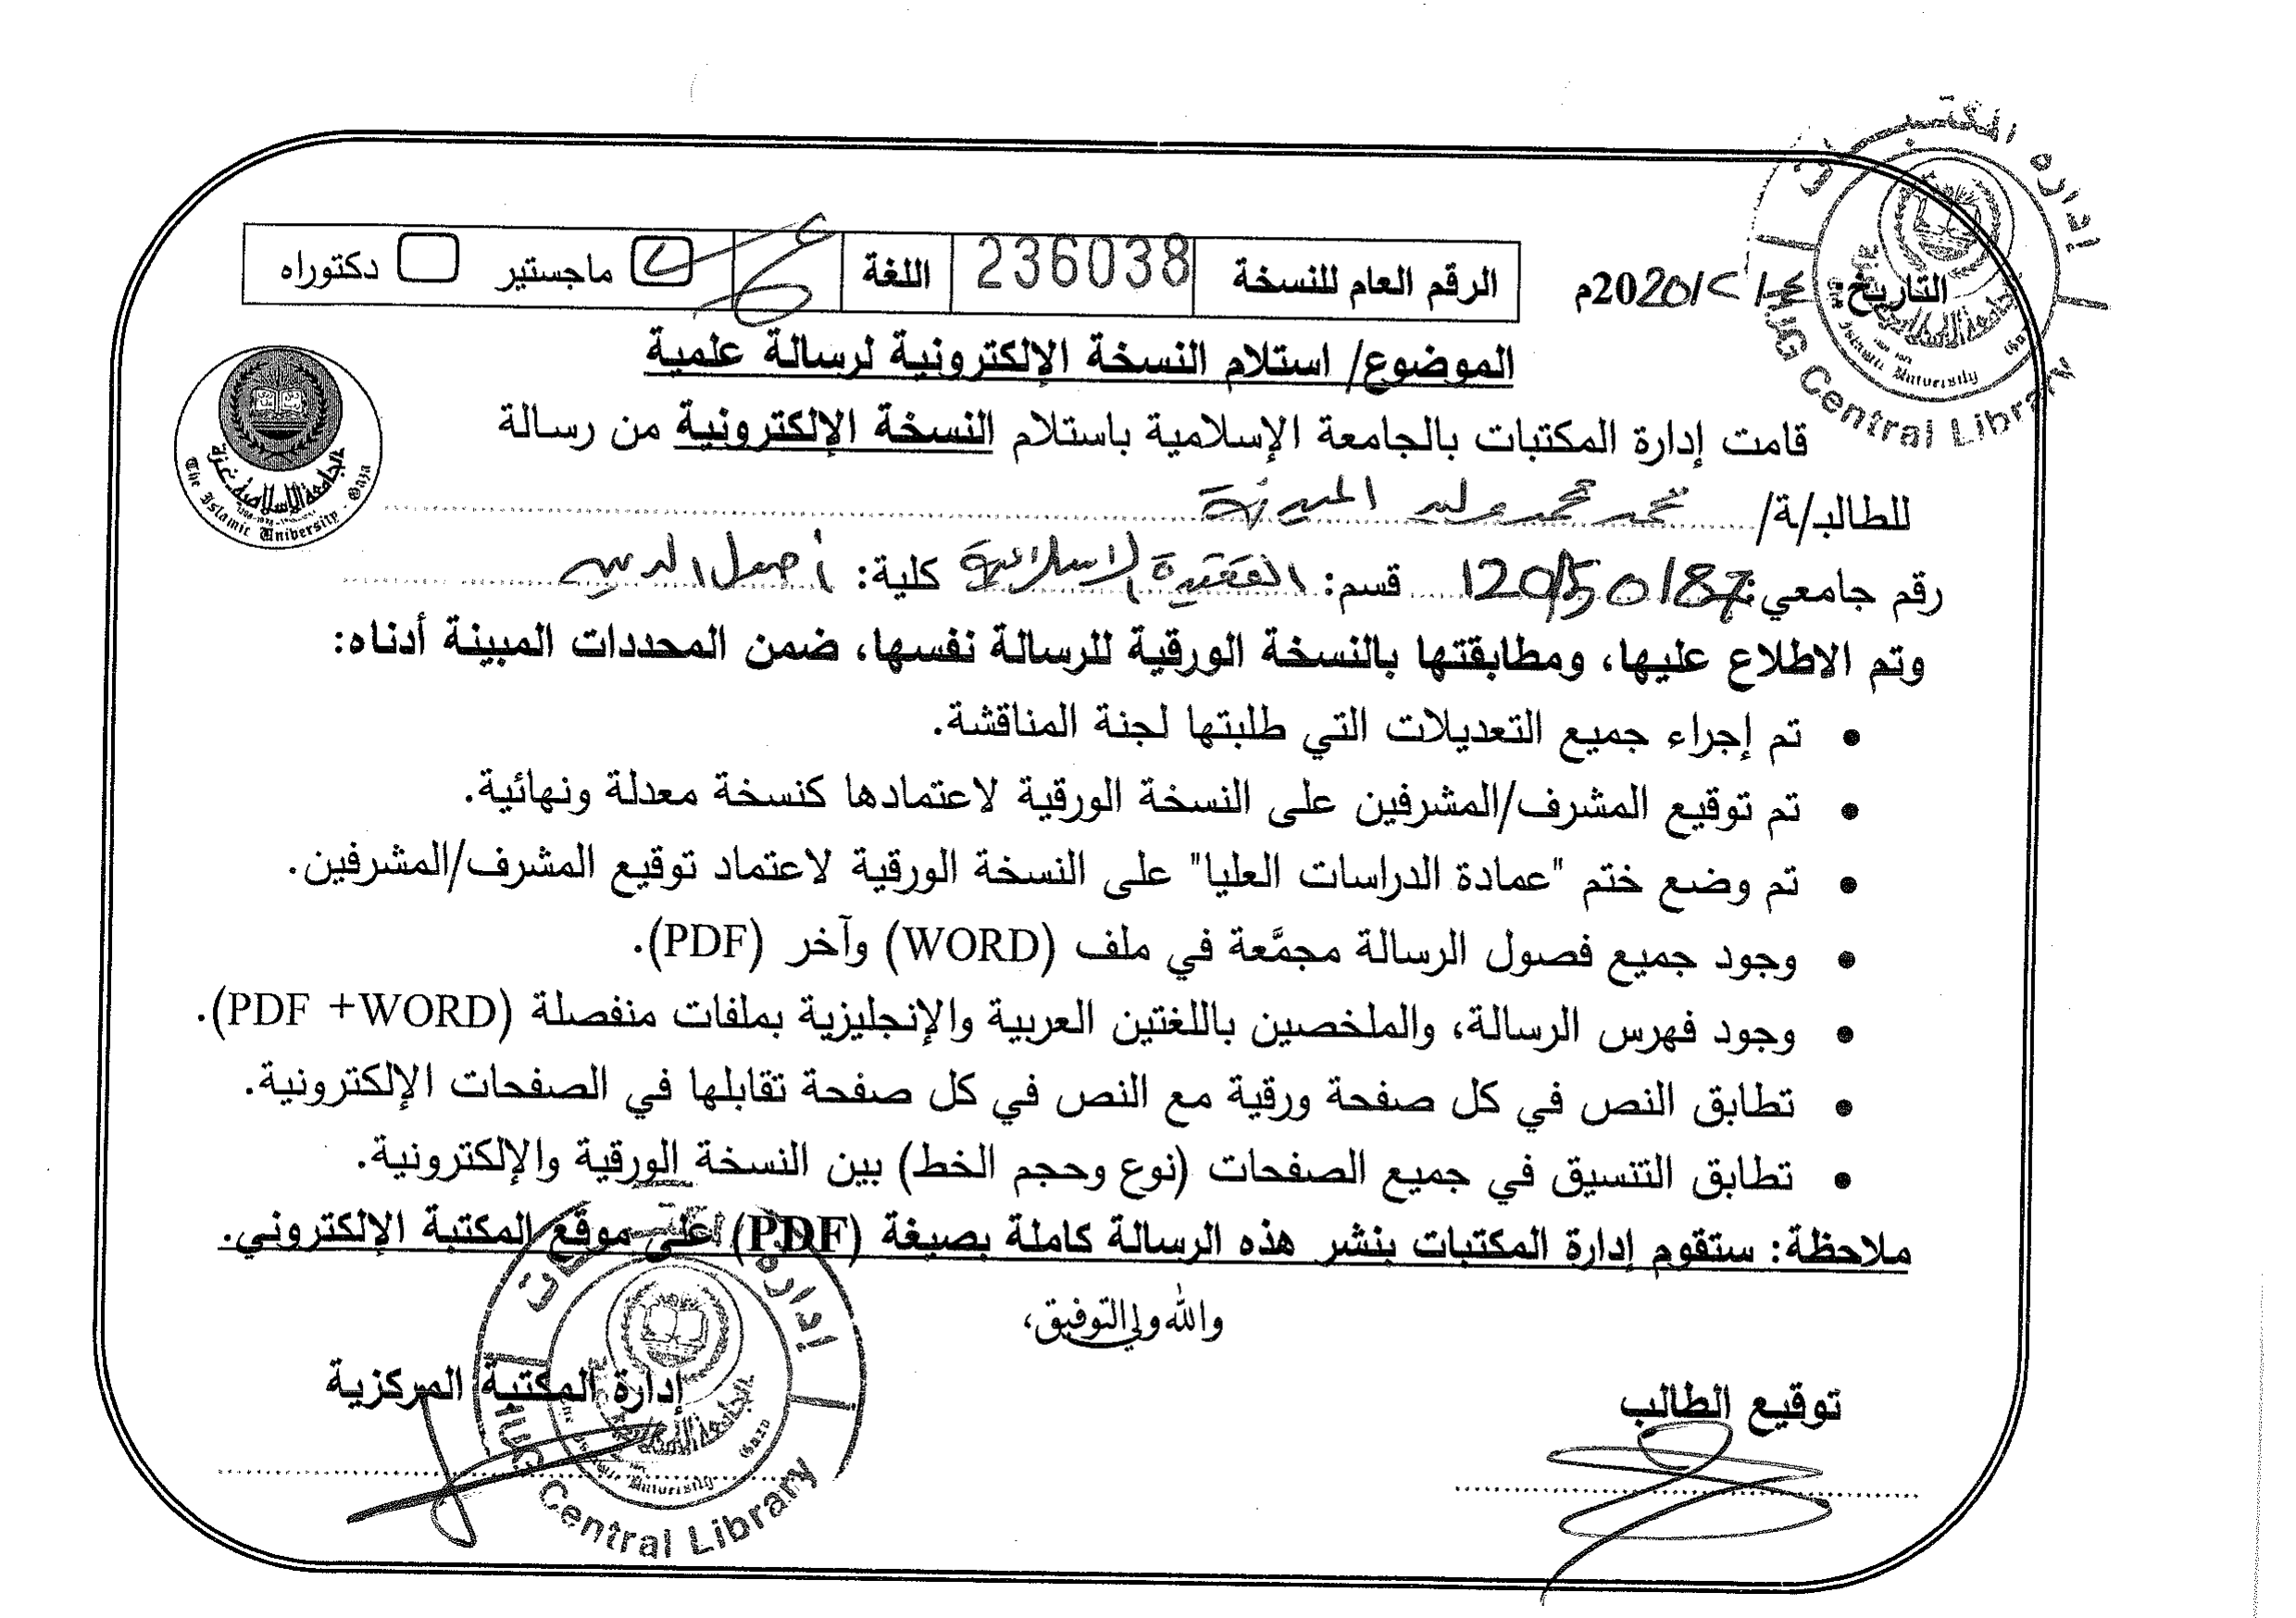 إدارة المكتبات
IUG Central Library
التاريخ: /٢/2020م
الرقم العام للنسخة 236038 اللغة ع ماجستير دكتوراه
الموضوع/ استلام النسخة الإلكترونية لرسالة علمية
الجامعة الإسلامية غزة
The Islamic University - Gaza
قامت إدارة المكتبات بالجامعة الإسلامية باستلام النسخة الإلكترونية من رسالة
للطالب/ة/ محمد محمد وليد
رقم جامعي: 120150187 قسم: العقيدة الإسلامية كلية: أصول الدين
وتم الاطلاع عليها، ومطابقتها بالنسخة الورقية للرسالة نفسها، ضمن المحددات المبينة أدناه:
• تم إجراء جميع التعديلات التي طلبتها لجنة المناقشة.
• تم توقيع المشرف/المشرفين على النسخة الورقية لاعتمادها كنسخة معدلة ونهائية.
• تم وضع ختم "عمادة الدراسات العليا" على النسخة الورقية لاعتماد توقيع المشرف/المشرفين.
• وجود جميع فصول الرسالة مجمَّعة في ملف (WORD) وآخر (PDF).
• وجود فهرس الرسالة، والملخصين باللغتين العربية والإنجليزية بملفات منفصلة (PDF +WORD).
• تطابق النص في كل صفحة ورقية مع النص في كل صفحة تقابلها في الصفحات الإلكترونية.
• تطابق التنسيق في جميع الصفحات (نوع وحجم الخط) بين النسخة الورقية والإلكترونية.
ملاحظة: ستقوم إدارة المكتبات بنشر هذه الرسالة كاملة بصيغة (PDF) على موقع المكتبة الإلكتروني.
والله ولي التوفيق،
توقيع الطالب
إدارة المكتبة المركزية
Central Library